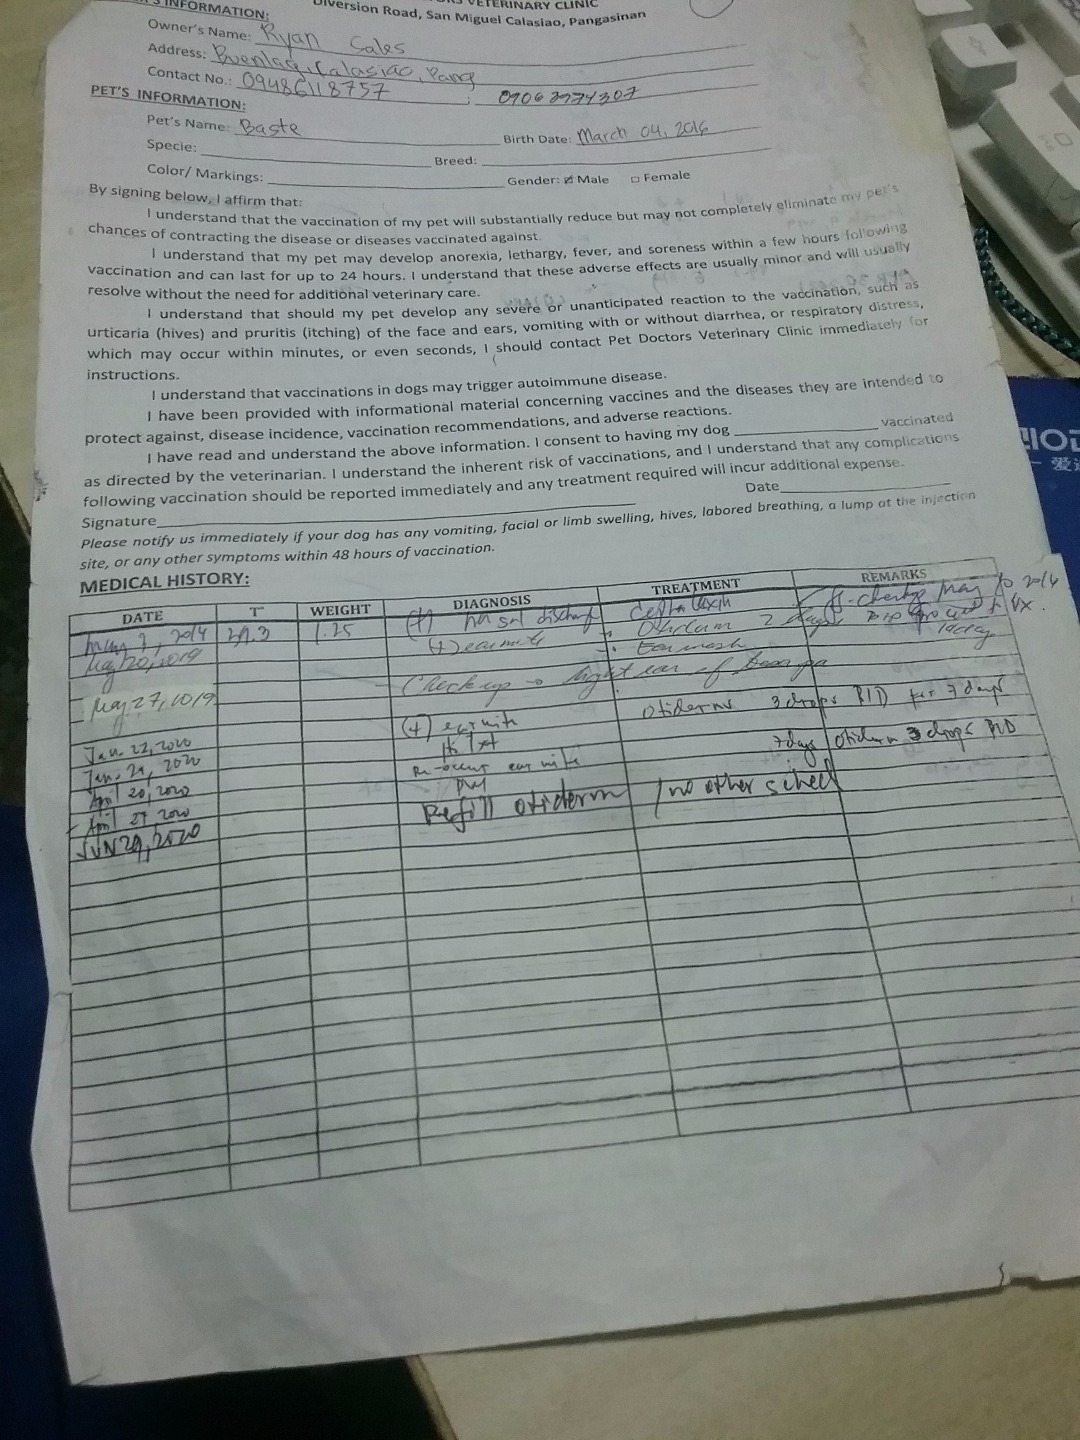 INFORMATION:
VETERINARY CLINIC
Diversion Road, San Miguel Calasiao, Pangasinan
Owner's Name: Ryan Sales
Address: Buenlag, Calasiao, Pang
Contact No.: 09486118757 ;
PET'S INFORMATION:
Pet's Name: Baste Birth Date: March 04, 2016
Specie: Breed:
Color/ Markings: Gender: Male Female
By signing below, I affirm that:
I understand that the vaccination of my pet will substantially reduce but may not completely eliminate my pet's
chances of contracting the disease or diseases vaccinated against.
I understand that my pet may develop anorexia, lethargy, fever, and soreness within a few hours following
vaccination and can last for up to 24 hours. I understand that these adverse effects are usually minor and will usually
resolve without the need for additional veterinary care.
I understand that should my pet develop any severe or unanticipated reaction to the vaccination, such as
urticaria (hives) and pruritis (itching) of the face and ears, vomiting with or without diarrhea, or respiratory distress,
which may occur within minutes, or even seconds, I should contact Pet Doctors Veterinary Clinic immediately for
instructions.
I understand that vaccinations in dogs may trigger autoimmune disease.
I have been provided with informational material concerning vaccines and the diseases they are intended to
protect against, disease incidence, vaccination recommendations, and adverse reactions.
I have read and understand the above information. I consent to having my dog vaccinated
as directed by the veterinarian. I understand the inherent risk of vaccinations, and I understand that any complications
following vaccination should be reported immediately and any treatment required will incur additional expense.
Signature Date
Please notify us immediately if your dog has any vomiting, facial or limb swelling, hives, labored breathing, a lump at the injection
site, or any other symptoms within 48 hours of vaccination.
MEDICAL HISTORY:
DATE T° WEIGHT DIAGNOSIS TREATMENT REMARKS
1.25 (+) discharge
May 20, 2019 (+) ear mite
Check up right ear
May 27, 2019
(+) ear mite Otiderm 3 drops BID for 7 days
Jan. 22, 2020
Jan. 29, 2020 ear mite 7 days Otiderm 3 drops BID
April 20, 2020
April 27 2020 Refill otiderm / no other sched
JUN 29, 2020